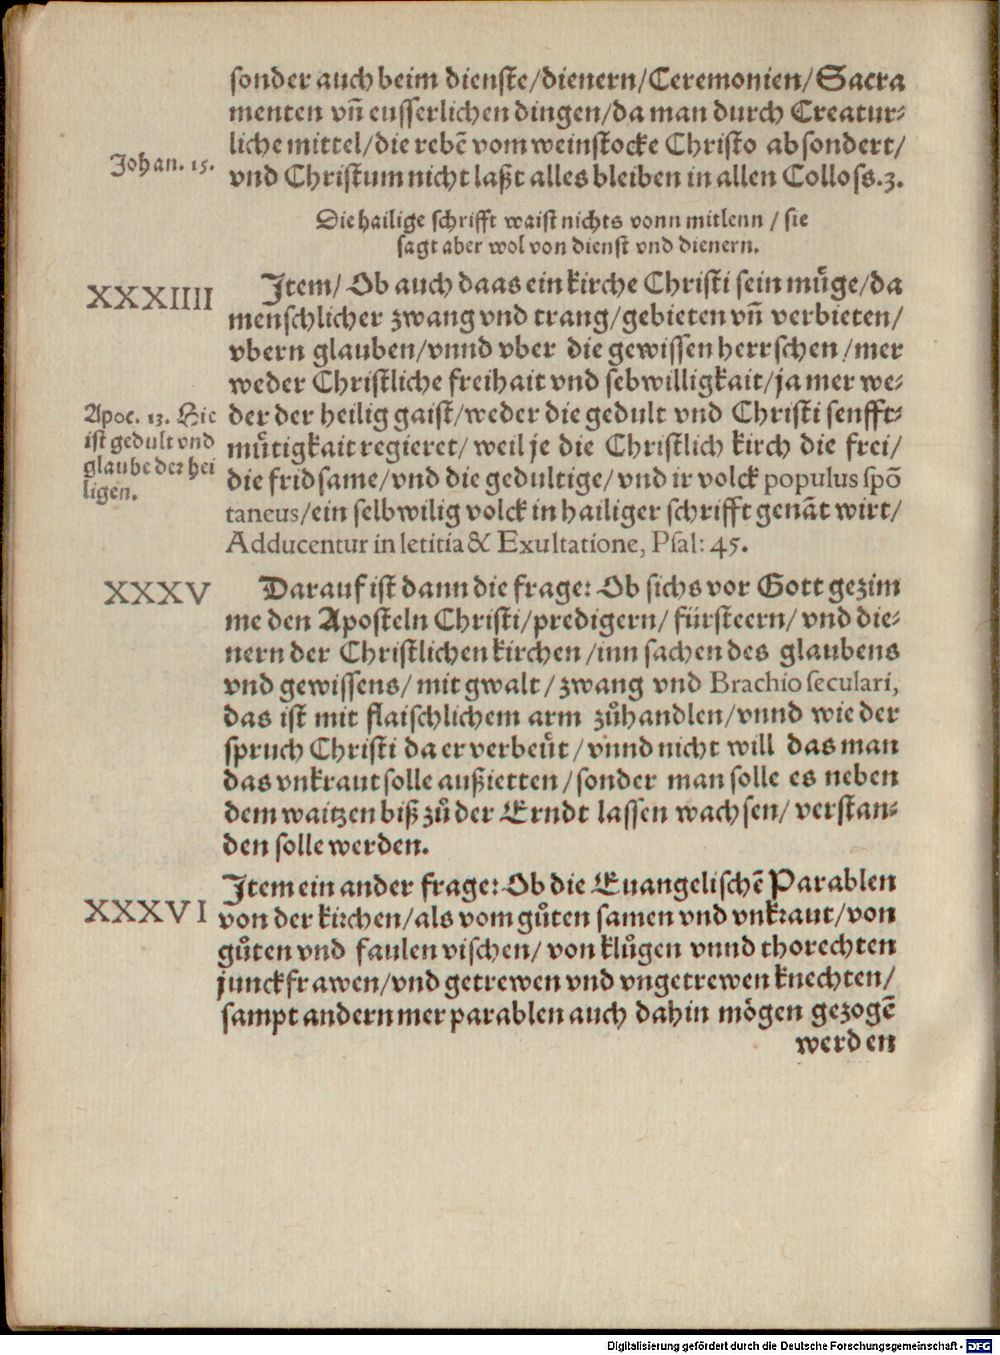 sonder auch beim dienste/dienern/Ceremonien/Sacra
menten vn̄ eusserlichen dingen/da man durch Creatur⸗
liche mittel/die rebē vom weinstocke Christo absondert/
Johan. 15.
vnd Christum nicht laßt alles bleiben in allen Colloss.3.
Die hailige schrifft waist nichts vonn mitlenn / sie
sagt aber wol von dienst vnd dienern.
XXXIIII
Item/ Ob auch daas ein kirche Christi sein mu̍ge/da
menschlicher zwang vnd trang/gebieten vn̄ verbieten/
vbern glauben/vnnd vber die gewissen herrschen/mer
weder Christliche freihait vnd sebwilligkait/ja mer we⸗
Apoc. 13. Hie
ist gedult vnd
glaube der hei
ligen.
der der heilig gaist/weder die gedult vnd Christi senfft⸗
mu̍tigkait regieret/ weil je die Christlich kirch die frei/
die fridsame/vnd die gedultige/vnd ir volck populus spō
taneus/ein selbwilig volck in hailiger schrifft genāt wirt/
Adducentur in letitia & Exultatione, Psal: 45.
XXXV
Darauf ist dann die frage: Ob sichs vor Gott gezim
me den Aposteln Christi/predigern/ fürsteern/ vnd die⸗
nern der Christlichen kirchen/inn sachen des glaubens
vnd gewissens/ mit gwalt/ zwang vnd Brachio seculari,
das ist mit flaischlichem arm zůhandlen/vnnd wie der
spruch Christi da er verbeůt/vnnd nicht will das man
das vnkraut solle außietten/sonder man solle es neben
dem waitzen biß zů der Erndt lassen wachsen/ verstan⸗
den solle werden.
XXXVI
Item ein ander frage: Ob die Euangelischē Parablen
von der kirchen/als vom gůten samen vnd vnkraut/von
gůten vnd faulen vischen/ von klůgen vnnd thorechten
junckfrawen/vnd getrewen vnd vngetrewen knechten/
sampt andern mer parablen auch dahin mögen gezogē
werden
Digitalisierung gefördert durch die Deutsche Forschungsgemeinschaft - DFG